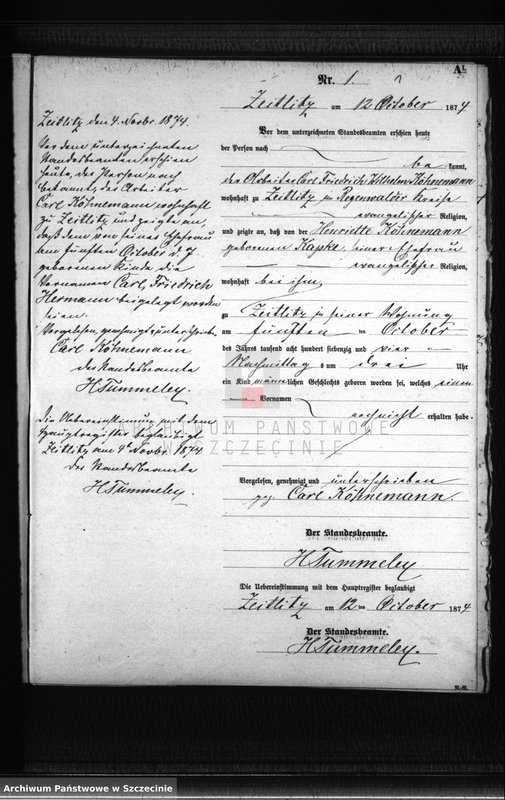 Nr. 1.
A
Zeitlitz am 12 October 1874
Vor dem unterzeichneten Standesbeamten erschien heute
der Person nach
be kannt,
der Arbeiter Carl Friedrich Wilhelm Köhnemann
wohnhaft zu Zeitlitz im Regenwalder Kreise
evangelischer Religion,
und zeigte an, daß von der Henriette Köhnemann
geborenen seiner Ehefrau
evangelischer Religion,
wohnhaft bei ihm,
zu Zeitlitz in seiner Wohnung
am fünften ten October
des Jahres tausend acht hundert siebenzig und vier
Nachmittag s um drei Uhr
ein Kind männlichen Geschlechts geboren worden sei, welches einen
Vornamen
noch nicht erhalten habe.
Vorgelesen, genehmigt und unterschrieben
gez. Carl Köhnemann.
Der Standesbeamte.
H Tummeley
Die Uebereinstimmung mit dem Hauptregister beglaubigt
Zeitlitz am 12 ten October 1874
Der Standesbeamte.
H Tummeley.
Zeitlitz den 4. Novbr. 1874.
Vor dem unterzeichneten
Standesbeamten erschien
heute, der Person nach
bekannt, der Arbeiter
Carl Köhnemann wohnhaft
zu Zeitlitz und zeigte an,
daß dem von seiner Ehefrau
am fünften October d. J
geborenen Kinde die
Vornamen Carl, Friedrich
Hermann beigelegt worden
seien.
Vorgelesen, genehmigt, unterschrieb.
Carl Köhnemann
Der Standesbeamte
H Tummeley.
Die Uebereinstimmung mit dem
Hauptregister beglaubigt
Zeitlitz am 4t Novbr. 1874
Der Standesbeamte
H Tummeley.
ARCHIWUM PAŃSTWOWE
W SZCZECINIE
Archiwum Państwowe w Szczecinie